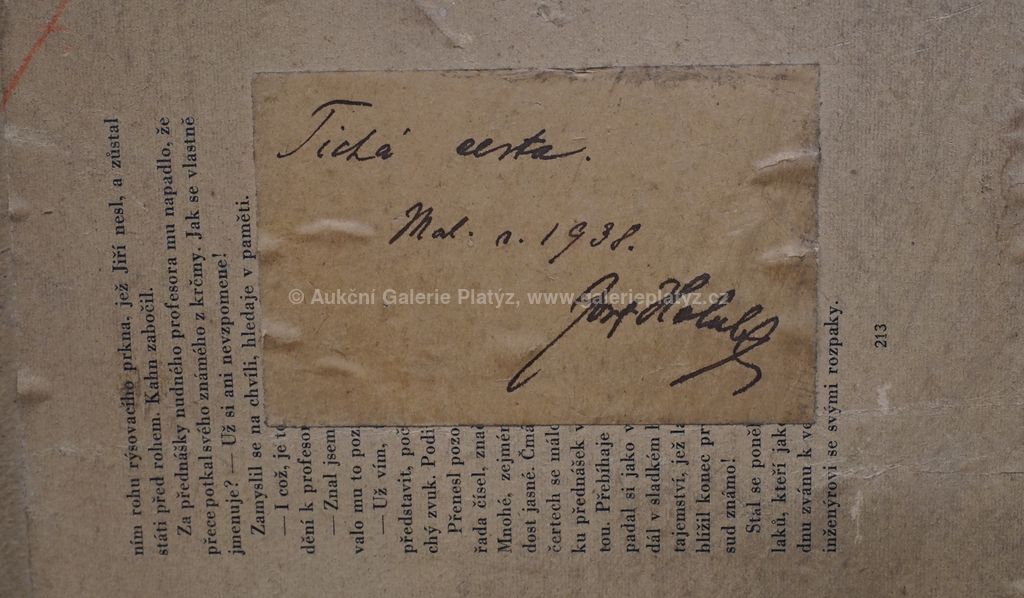 Tichá cesta.
Mal. r. 1938.
Josef Holub
© Aukční Galerie Platýz, www.galerieplatyz.cz
ním rohu rýsovacího prkna, jež Jiří nesl, a zůstal
státi před rohem. Kahn zabočil.
Za přednášky nudného profesora mu napadlo, že
přece potkal svého známého z krčmy. Jak se vlastně
jmenuje? — Už si ani nevzpomene!
Zamyslil se na chvíli, hledaje v paměti.
— I což, je to
dění k profesor
— Znal jsem
valo mu to poz
— Už vím,
představit, poč
chý zvuk. Podi
Přenesl pozo
řada čísel, znač
Mnohé, zejmén
dost jasné. Čmá
čertech se málo
ku přednášek v
tou. Přebíhaje
padal si jako v
dál v sladkém
tajemství, jež
blížil konec pr
sud známo!
Stal se poně
laků, kteří jako
dnu zvánu k ve
inženýrovi se svými rozpaky.
213